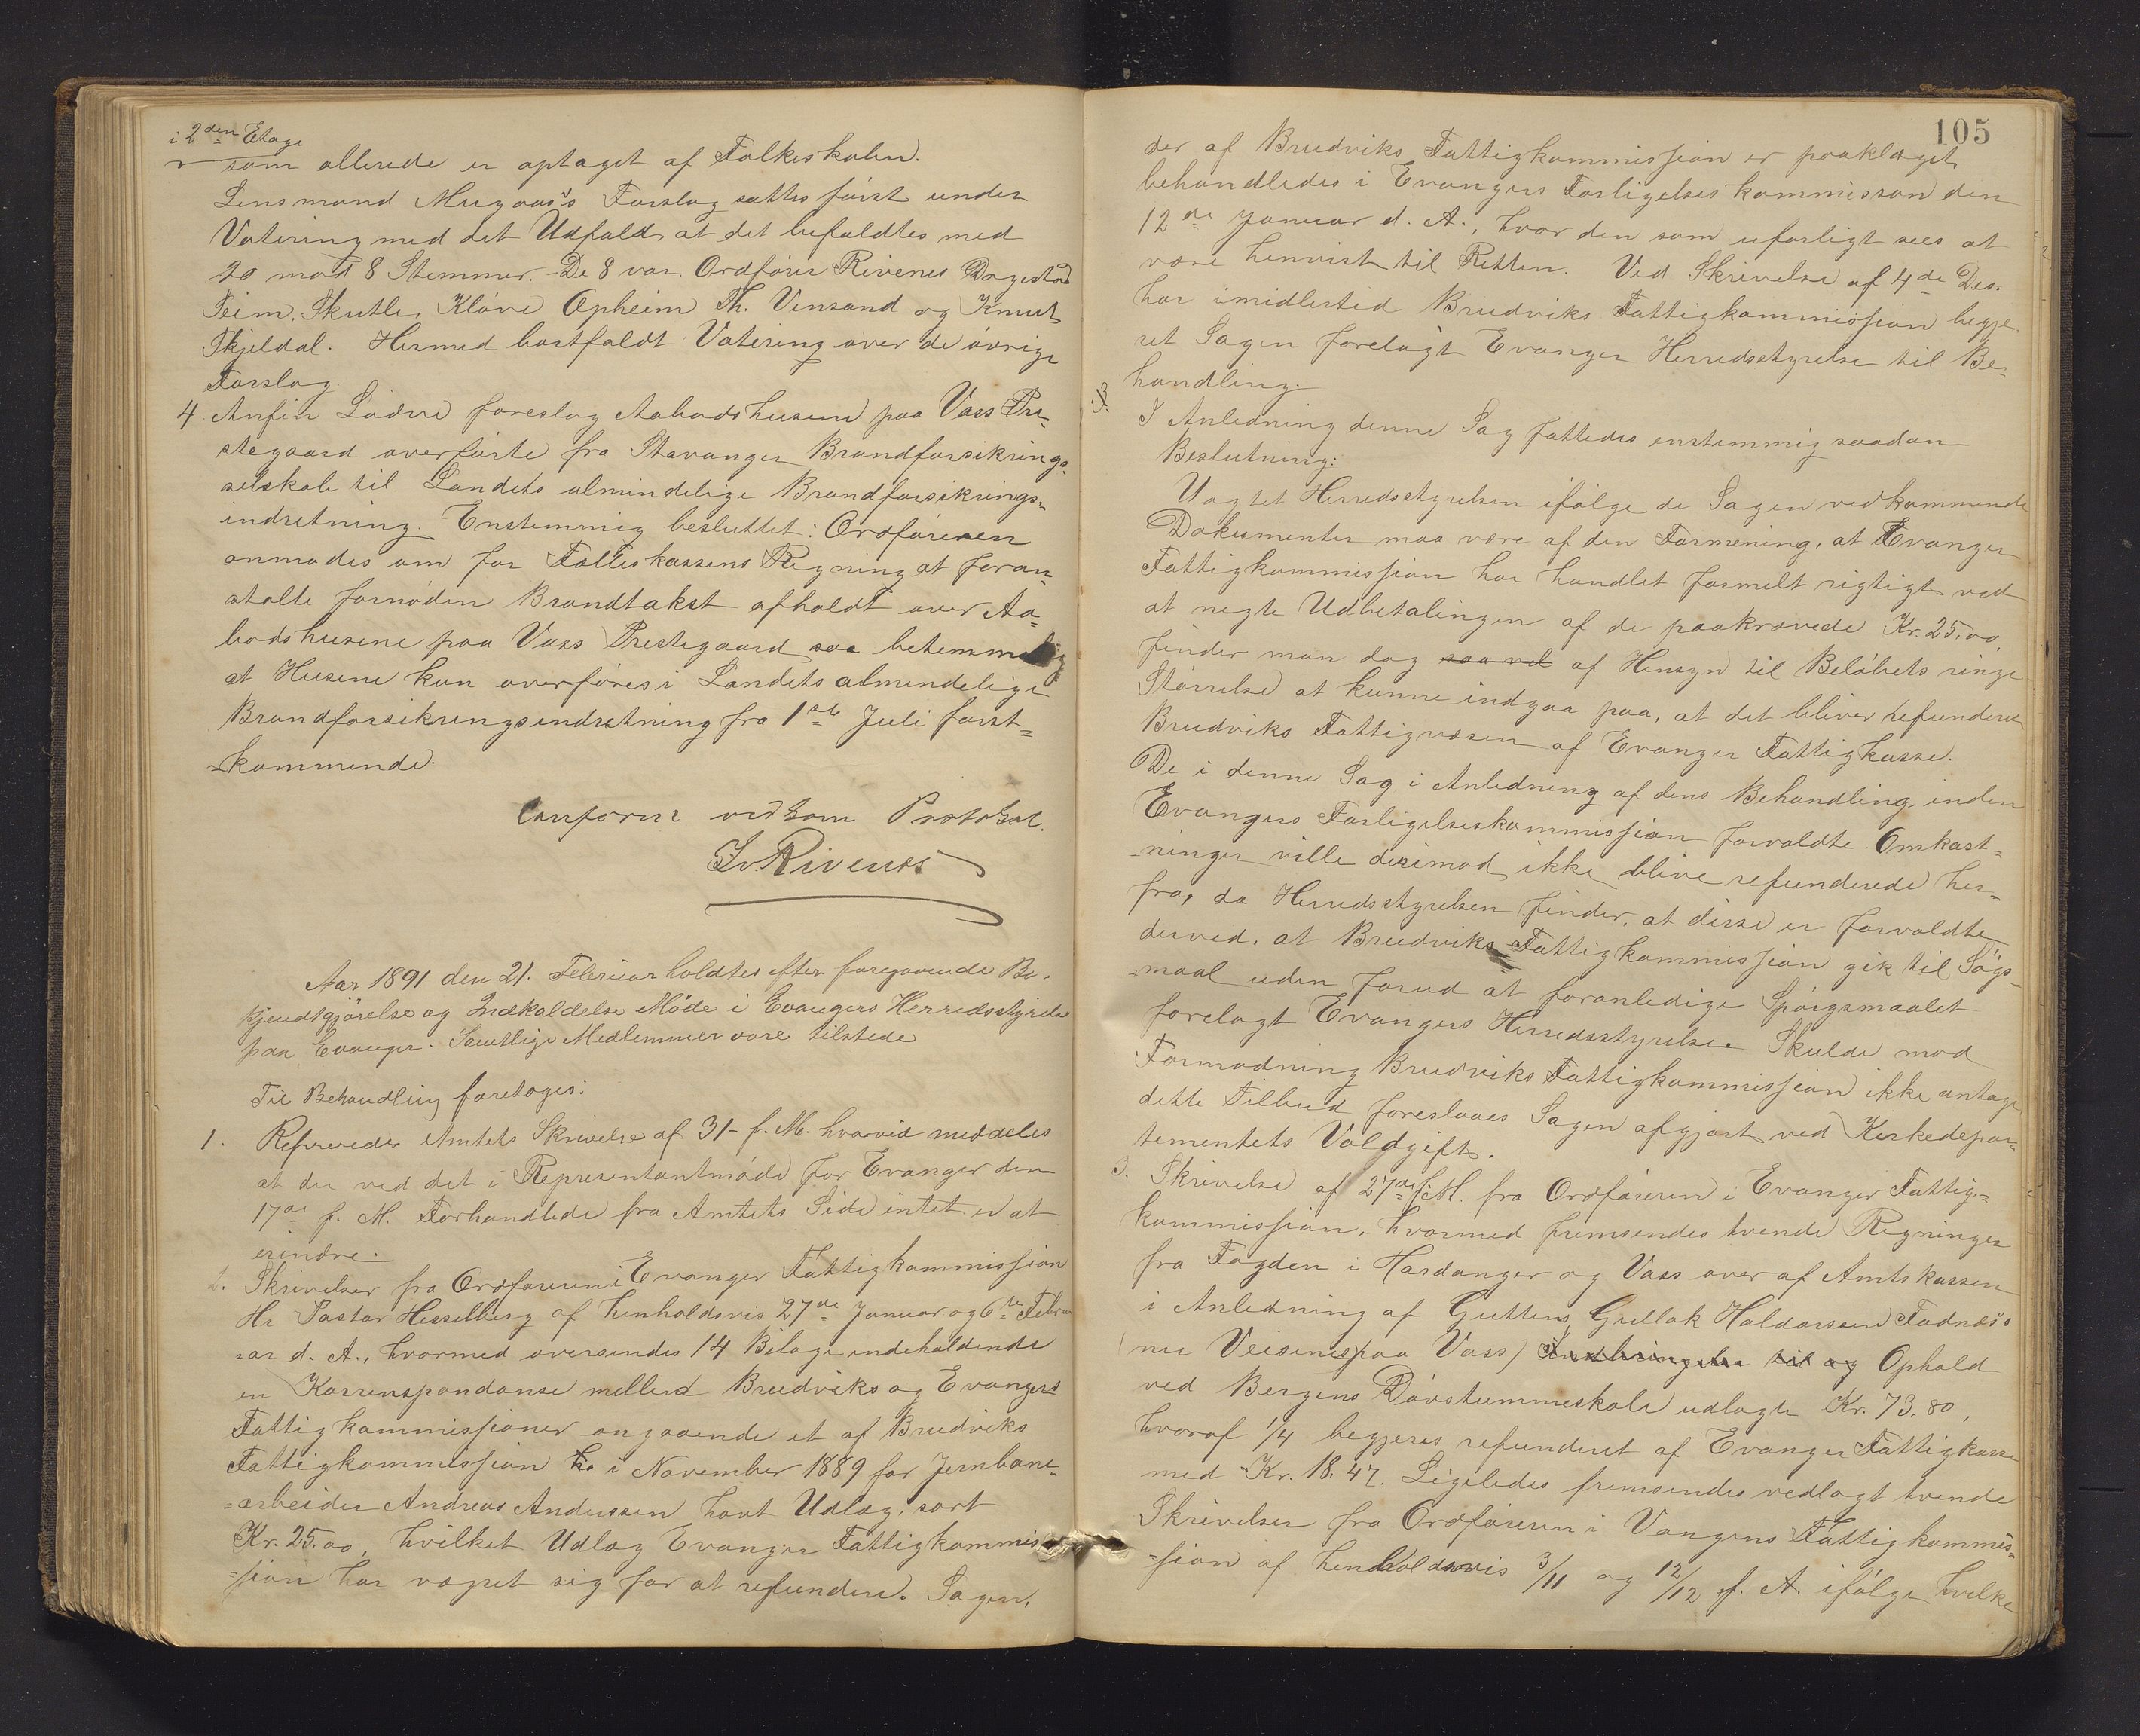 i 2den Etage
som allerede er optaget af Folkeskolen.
Lensmand Mugaas's Forslag sattes først under
Votering med det Udfald, at det befaldtes med
20 mod 8 Stemmer. De 8 var Ordfører Rivenes Dagestad
Seim, Skutle, Kløve Opheim Th. Vinsand og Knut
Skjeldal. Hermed bortfaldt Votering over de øvrige
Forslag.
4. Anfin Lødve foreslog Aabodshusene paa Voss Pre-
stegaard overførte fra Stavanger Brandforsikrings-
selskab til Landets almindelige Brandforsikrings-
indretning. Enstemmig besluttet: Ordføreren
anmodes om for Fælleskassens Regning at foran-
stalte fornøden Brandtakst afholdt over Aa-
bodshusene paa Voss Prestegaard saa betimmelig
at Husene kan overføres i Landets almindelige
Brandforsikringsindretning fra 1ste Juli først-
-kommende.
Conform vedkom Protokol.
Iv. Rivenes
Aar 1891 den 21. Februar holdtes efter foregaaende Be-
kjendtgjørelse og Indkaldelse Møde i Evangers Herredsstyrelse
paa Evanger. Samtlige Medlemmer vare tilstede
Til Behandling foretoges:
1. Refereredes Amtets Skrivelse af 31- f. M. hvorved meddeles
at der ved det i Representantmøde for Evanger den
17de f. M. Forhandlede fra Amtets Side intet er at
erindre.
2. Skrivelser fra Ordføreren i Evanger Fattigkommission
Hr Pastor Hesselberg af henholdsvis 27de Januar og 6te Febru
ar d. A., hvormed oversendes 14 Bilage indeholdende
en Korrenspondanse mellem Brudviks og Evangers
Fattigkommissioner angaaende et af Brudviks
Fattigkommission i November 1889 for Jernbane-
-arbeider Andreas Anderssen havt Udlæg, sort
Kr. 25.00, hvilket Udlæg Evanger Fattigkommis-
-sion har vægret sig for at refundere. Sagen,
105
der af Brudviks Fattigkommission er paaklaget,
behandledes i Evangers Forligelseskommission den
12de Januar d. A., hvor den som uforligt sees at
være henvist til Retten. Ved Skrivelse af 4de Des.
har imidlertid Brudviks Fattigkommission begje-
ret Sagen forelagt Evanger Herredsstyrelse til Be-
handling.
I Anledning denne Sag fattedes enstemmig saadan
Beslutning:
Uagtet Herredsstyrelsen ifølge de Sagen vedkommende
Dokumenter maa være af den Formening, at Evanger
Fattigkommission har handlet formelt rigtigt ved
at negte Udbetalingen af de paakrævede Kr. 25.00,
finder man dog saa vel af Hensyn til Beløbets ringe
Størrelse at kunne indgaa paa, at det bliver refunderet
Brudviks Fattigvæsen af Evanger Fattigkasse.
De i denne Sag i Anledning af dens Behandling inden
Evangers Forligelseskommission forvoldte Omkost-
-ninger ville derimod ikke blive refunderede her-
fra, da Herredsstyrelsen finder, at disse er forvoldte
derved, at Brudviks Fattigkommission gik til Søgs-
-maal uden forud at foranledige Spørgsmaalet
forelagt Evangers Herredsstyrelse. Skulde mod
Formodning Brudviks Fattigkommission ikke antage
dette Tilbud foreslaaes Sagen afgjort ved Kirkedepar-
tementets Voldgift.
3. Skrivelse af 27de f. M. fra Ordføreren i Evanger Fattig-
kommission, hvormed fremsendes tvende Regninger
fra Fogden i Hardanger og Voss over af Amtskassen
i Anledning af Guttens Gullak Haldorssen Fadnæs's
(nu Veisene paa Voss) Indbringelse til og Ophold
ved Bergens Døvstummeskole udlagte Kr. 73.80,
hvoraf 1/4 begjeres refunderet af Evanger Fattigkasse
med Kr. 18.47. Ligeledes fremsendes vedlagt tvende
Skrivelser fra Ordføreren i Vangens Fattigkommis-
-sion af henholdsvis 3/11 og 12/12 f. A. ifølge hvilke